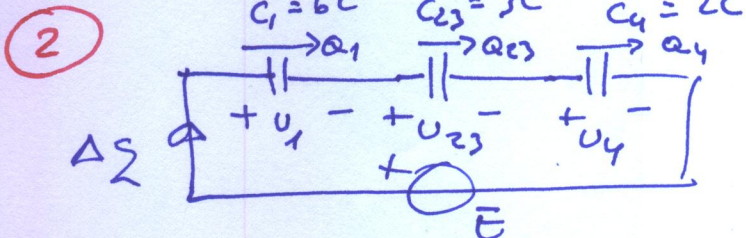 C₁ = 6C C₂₃ = 3C C₄ = 2C
2
Q₁ Q₂₃ Q₄
+ U₁ - + U₂₃ - + U₄ -
Δq
+
E